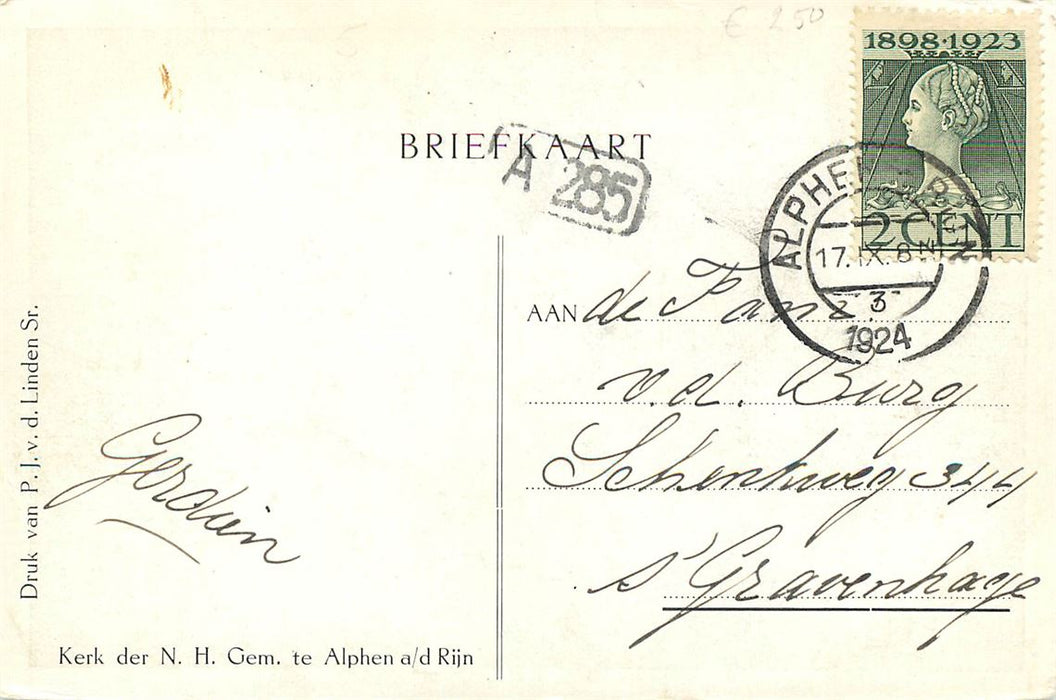 € 2 50
1898·1923
2 CENT
BRIEFKAART
A 285
ALPHEN A/D RIJN
17.IX.8N
3
1924
AAN de Fam.
v. d. Burg
Schenkweg 344
s'Gravenhage
Gerdien
Druk van P. J. v. d. Linden Sr.
Kerk der N. H. Gem. te Alphen a/d Rijn